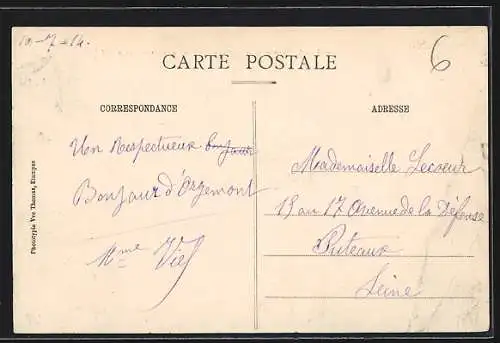 10-7-14.
CARTE POSTALE
6
CORRESPONDANCE
ADRESSE
Un Respectueux bonjour
Bonjour d'Orgemont
Mme Viel
Mademoiselle Lecoeur
15 au 17 Avenue de la Défense
Puteaux
Seine
Phototypie Vve Thomas, Etampes